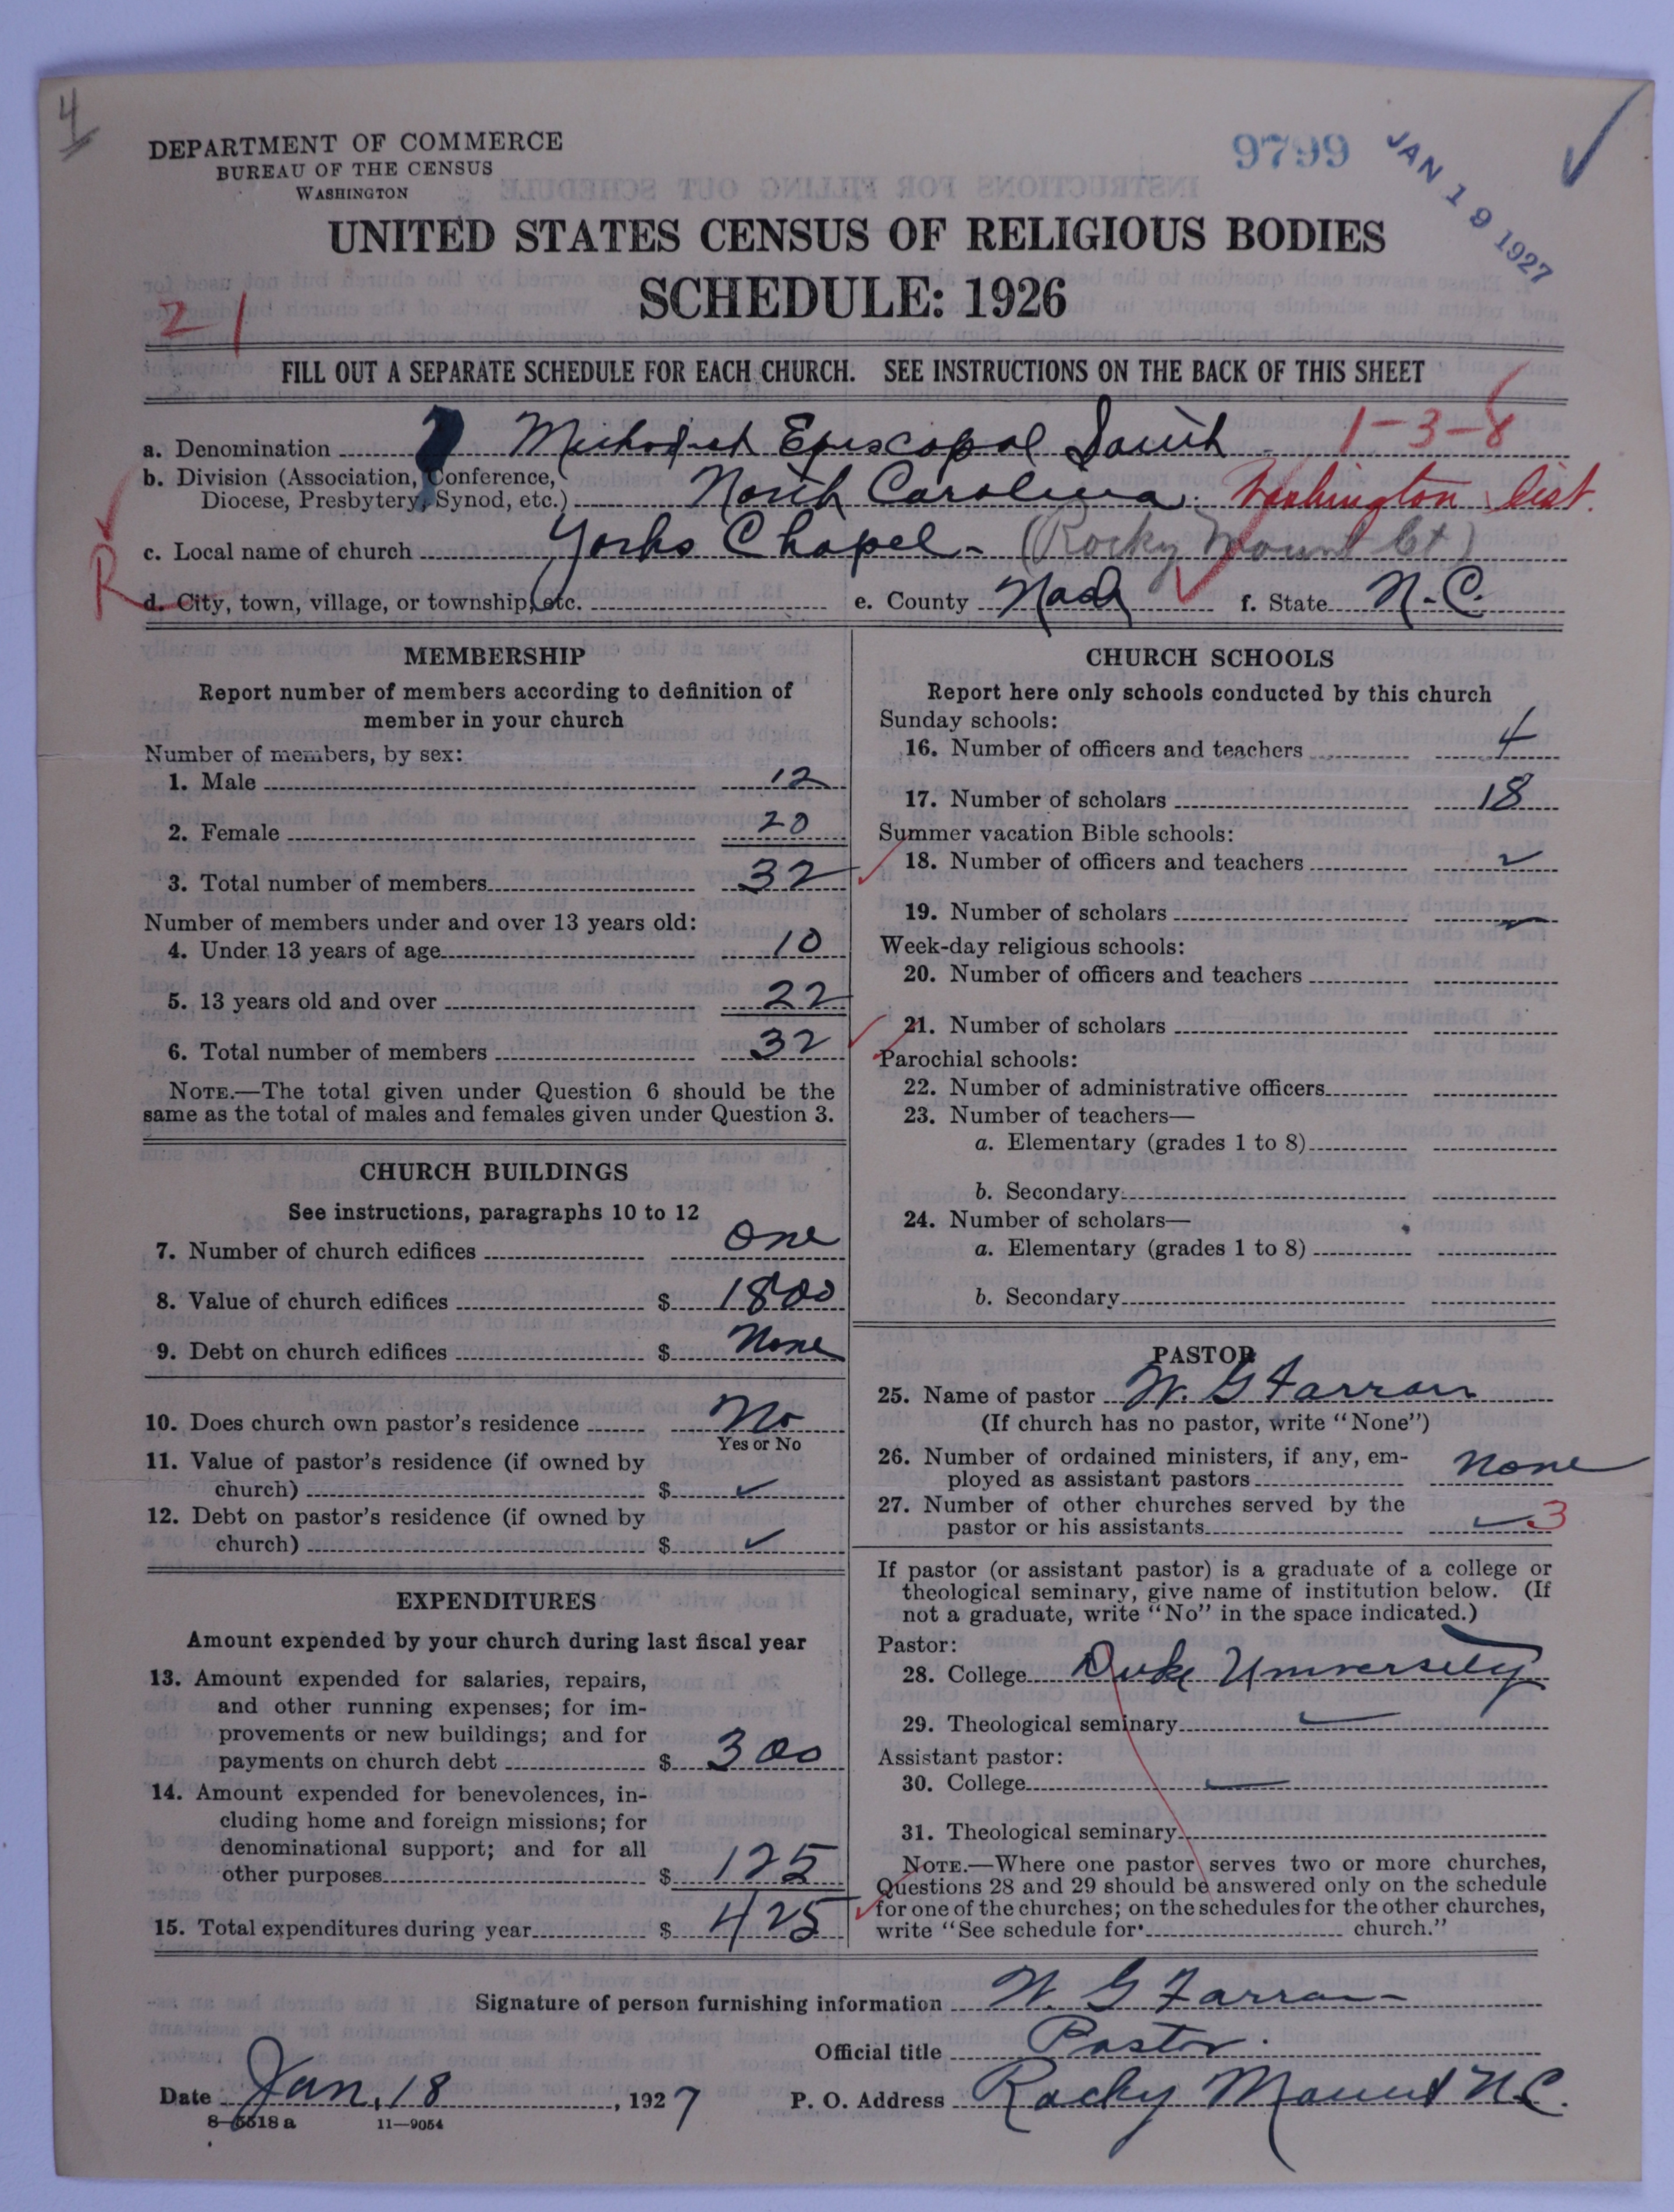 4
DEPARTMENT OF COMMERCE
BUREAU OF THE CENSUS
WASHINGTON
9799
JAN 19 1927
UNITED STATES CENSUS OF RELIGIOUS BODIES
SCHEDULE: 1926
21
FILL OUT A SEPARATE SCHEDULE FOR EACH CHURCH. SEE INSTRUCTIONS ON THE BACK OF THIS SHEET
a. Denomination Methodist Episcopal South 1-3-8
b. Division (Association, Conference,
Diocese, Presbytery, Synod, etc.) North Carolina. Washington Dist.
c. Local name of church Yorks Chapel - (Rocky Mount Ct)
R
d. City, town, village, or township, etc. e. County Nash f. State N.C.
MEMBERSHIP
Report number of members according to definition of
member in your church
Number of members, by sex:
1. Male 12
2. Female 20
3. Total number of members 32
Number of members under and over 13 years old:
4. Under 13 years of age 10
5. 13 years old and over 22
6. Total number of members 32
NOTE.—The total given under Question 6 should be the
same as the total of males and females given under Question 3.
CHURCH BUILDINGS
See instructions, paragraphs 10 to 12
7. Number of church edifices One
8. Value of church edifices $ 1800
9. Debt on church edifices $ None
10. Does church own pastor's residence No
Yes or No
11. Value of pastor's residence (if owned by
church) $ ✓
12. Debt on pastor's residence (if owned by
church) $ ✓
EXPENDITURES
Amount expended by your church during last fiscal year
13. Amount expended for salaries, repairs,
and other running expenses; for im-
provements or new buildings; and for
payments on church debt $ 300
14. Amount expended for benevolences, in-
cluding home and foreign missions; for
denominational support; and for all
other purposes $ 125
15. Total expenditures during year $ 425
CHURCH SCHOOLS
Report here only schools conducted by this church
Sunday schools:
16. Number of officers and teachers 4
17. Number of scholars 18
Summer vacation Bible schools:
18. Number of officers and teachers ✓
19. Number of scholars ✓
Week-day religious schools:
20. Number of officers and teachers
21. Number of scholars
Parochial schools:
22. Number of administrative officers
23. Number of teachers—
a. Elementary (grades 1 to 8)
b. Secondary
24. Number of scholars—
a. Elementary (grades 1 to 8)
b. Secondary
PASTOR
25. Name of pastor W. G Farrar
(If church has no pastor, write "None")
26. Number of ordained ministers, if any, em-
ployed as assistant pastors None
27. Number of other churches served by the
pastor or his assistants ✓ 3
If pastor (or assistant pastor) is a graduate of a college or
theological seminary, give name of institution below. (If
not a graduate, write "No" in the space indicated.)
Pastor:
28. College Duke University
29. Theological seminary
Assistant pastor:
30. College
31. Theological seminary
NOTE.—Where one pastor serves two or more churches,
Questions 28 and 29 should be answered only on the schedule
for one of the churches; on the schedules for the other churches,
write "See schedule for church."
Signature of person furnishing information W. G Farrar
Official title Pastor.
Date Jan, 18, 1927 P. O. Address Rocky Mount N.C.
8-5518 a 11-9054